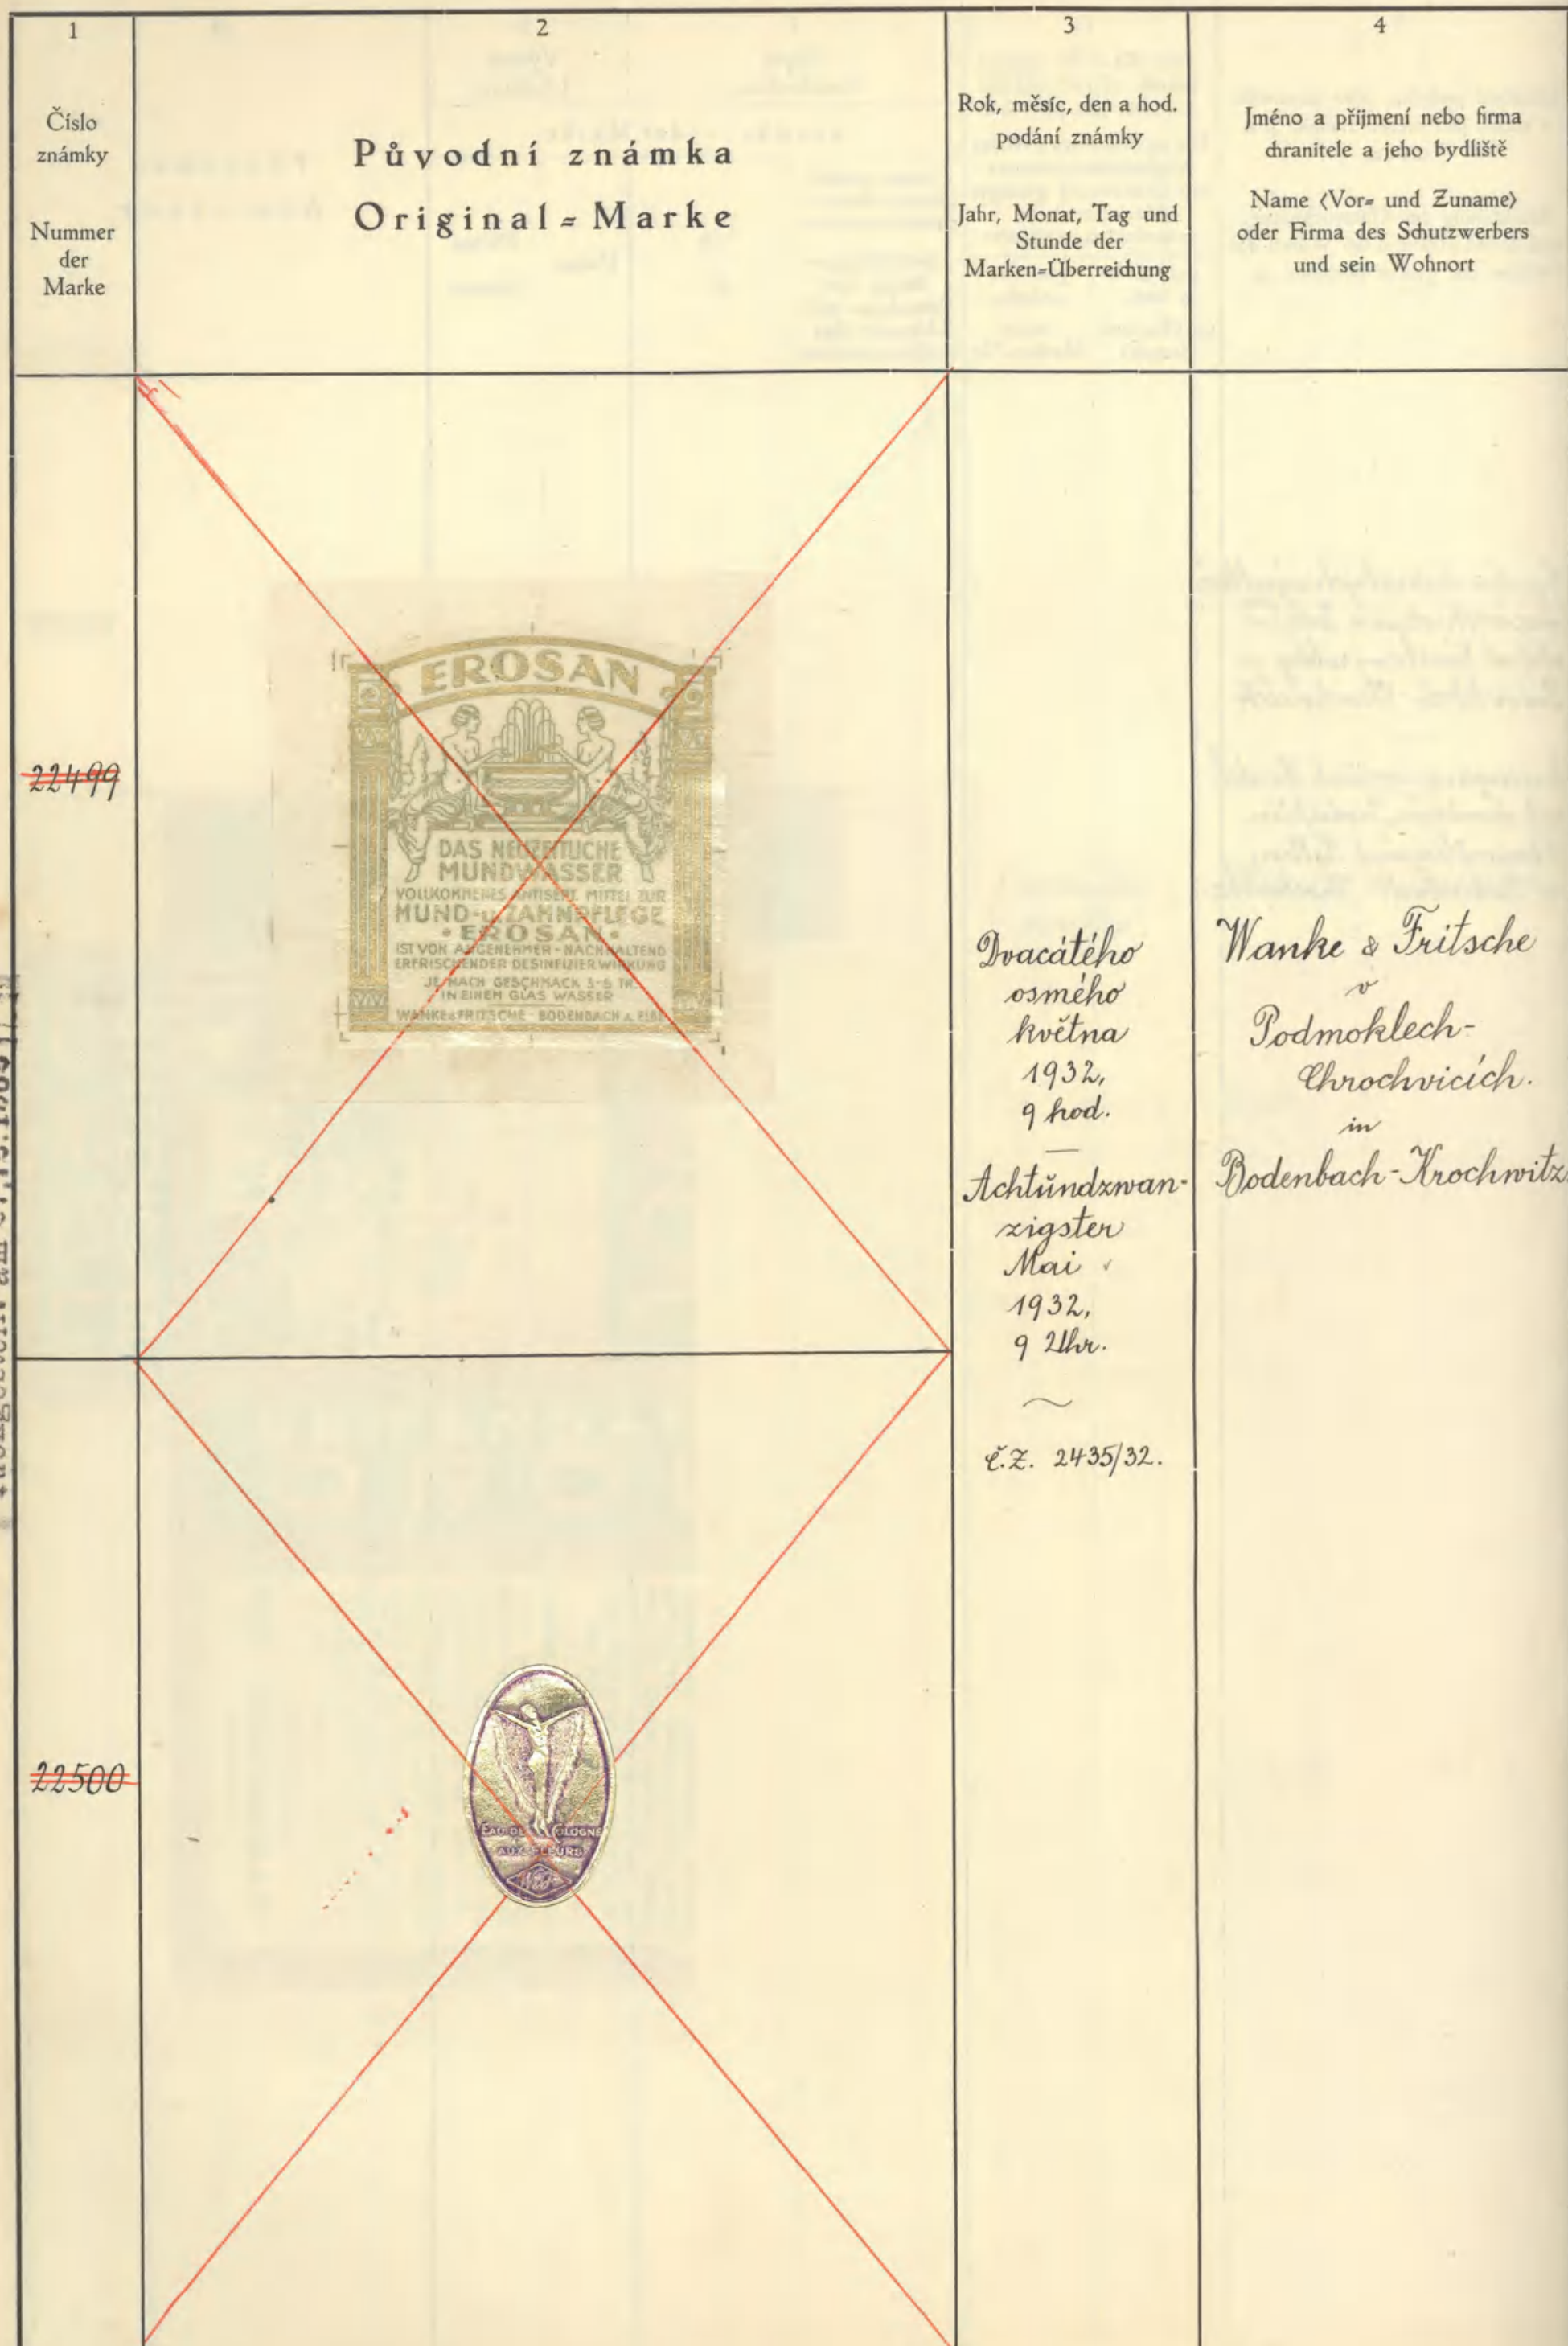 1
Číslo
známky
Nummer
der
Marke
2
Původní známka
Original=Marke
3
Rok, měsíc, den a hod.
podání známky
Jahr, Monat, Tag und
Stunde der
Marken=Überreichung
4
Jméno a příjmení nebo firma
chranitele a jeho bydliště
Name (Vor= und Zuname)
oder Firma des Schutzwerbers
und sein Wohnort
22499
EROSAN
DAS NEUZEITLICHE
MUNDWASSER
VOLLKOMMENES ANTISEPT. MITTEL ZUR
MUND-u. ZAHNPFLEGE
• EROSAN •
IST VON ANGENEHMER - NACHHALTEND
ERFRISCHENDER DESINFIZIERWIRKUNG
JE NACH GESCHMACK 3-5 TR.
IN EINEM GLAS WASSER
WANKE & FRITSCHE - BODENBACH A. ELBE
Dvacátého
osmého
května
1932,
9 hod.
Achtundzwan-
zigster
Mai
1932,
9 Uhr.
č.Z. 2435/32.
Wanke & Fritsche
v
Podmoklech-
Chrochvicích.
in
Bodenbach-Krochwitz.
22500
EAU DE COLOGNE
AUX FLEURS